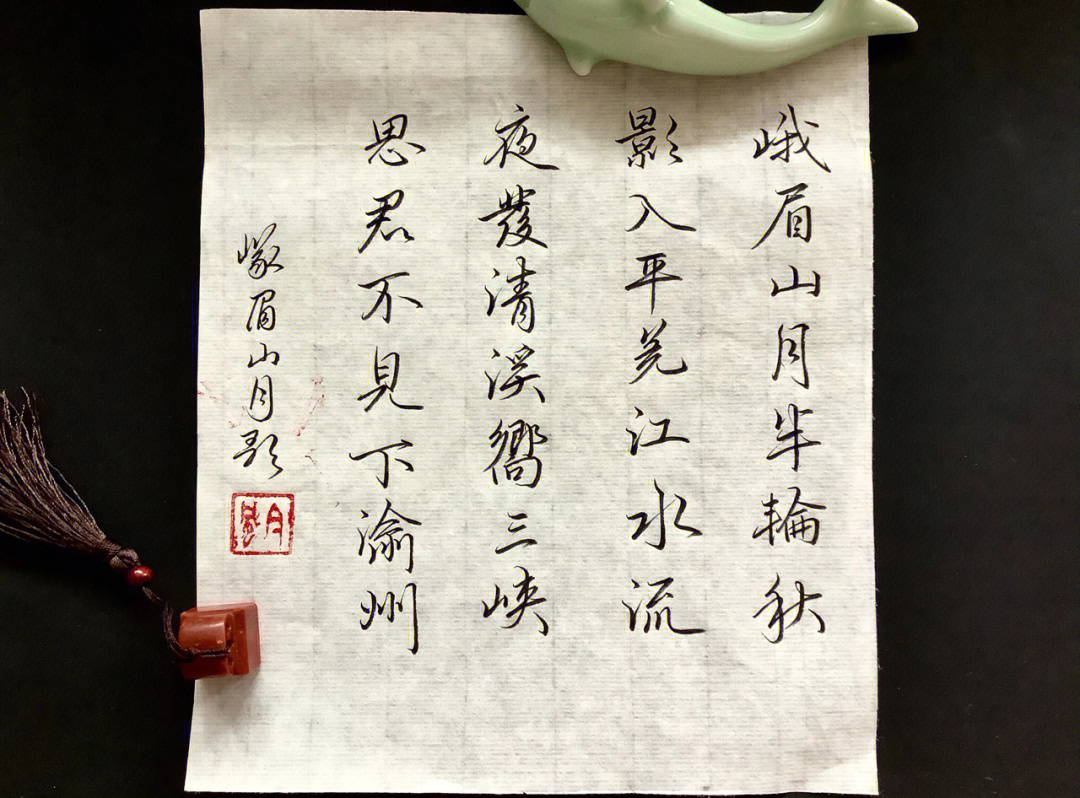 峨眉山月半輪秋
影入平羌江水流
夜發清溪嚮三峽
思君不見下渝州
峨眉山月歌